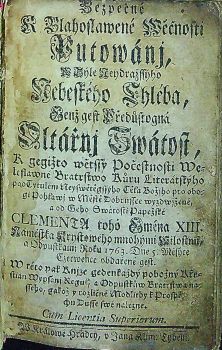 Bezpečné
K Blahoslawené Wěčnosti
Putowánj,
Nebeského Chleba,
Genž gest Předůstogná
Oltářnj Swátost,
K gegjžto wětssý Počestnosti We-
leslawné Bratrstwo Kůru Literátskýho
pod Tytulem Neyswětěgssýho Těla Božjho pro obo-
gj Pohlawj w Městě Dobrussce wyzdwižené,
a od Geho Swátosti Papežské
CLEMENTA toho Gména XIII.
Náměstka Krystowého mnohými Milostmi,
a Odpustkami Roku 1763. Dne 5. Měsýce
Čerwence obdařené gest.
W této pak Knjze gedenkaždý pobožný Kře-
stian Wypsánj Regulj, a Odpustkůw Bratrstwa na-
ssého, gakož y rozličné Modlitby k Prospě-
chu Dusse swé nalezne.
Cum Licentia Superiorum.
W Králowé Hradcy, v Jana Klym. Tybély.